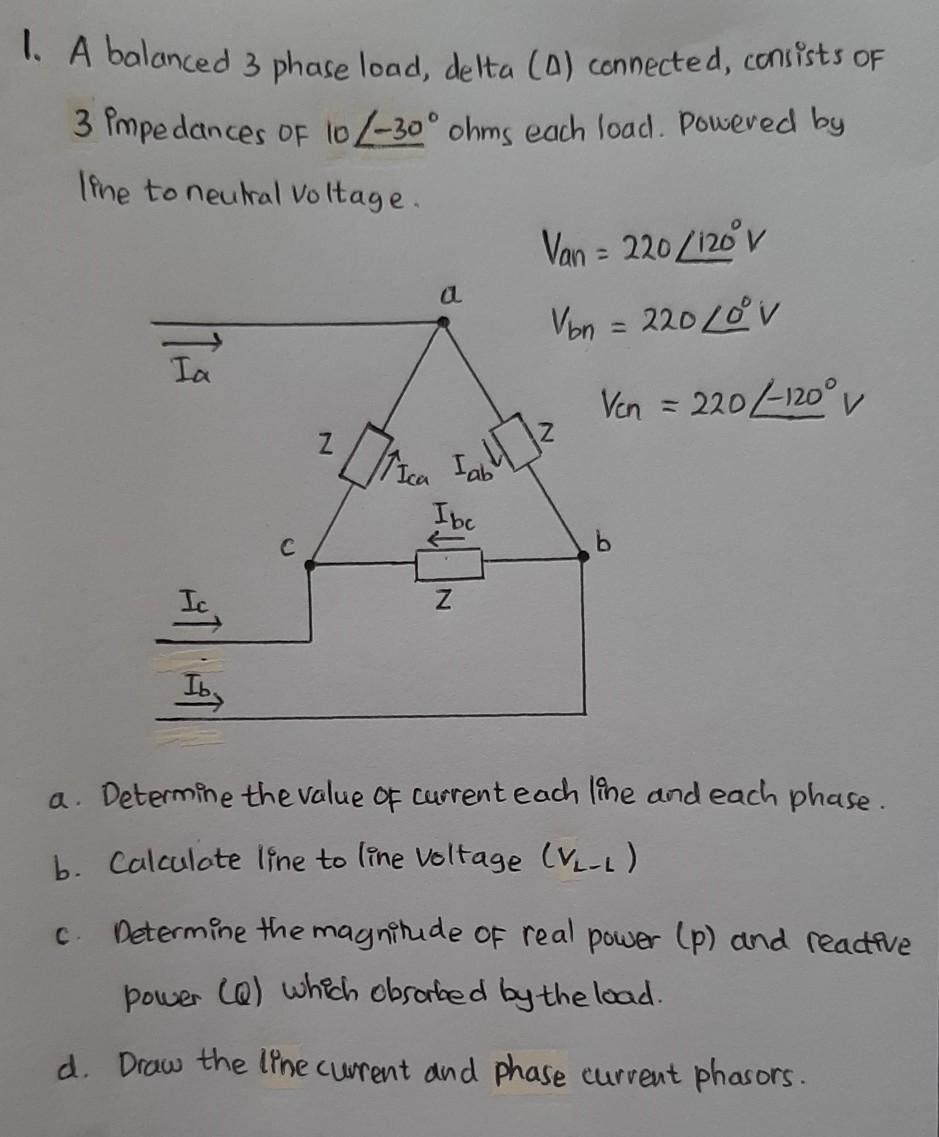 1. A balanced 3 phase load, delta (Δ) connected, consists of
3 impedances of 10∠-30° ohms each load. Powered by
line to neutral voltage.
Van = 220∠120° V
Vbn = 220∠0° V
Vcn = 220∠-120° V
a
Ia
Z
Ica
Iab
Z
Ibc
c
b
Z
Ic
Ib
a. Determine the value of current each line and each phase.
b. Calculate line to line voltage (VL-L)
c. Determine the magnitude of real power (p) and reactive
power (Q) which obsorbed by the load.
d. Draw the line current and phase current phasors.